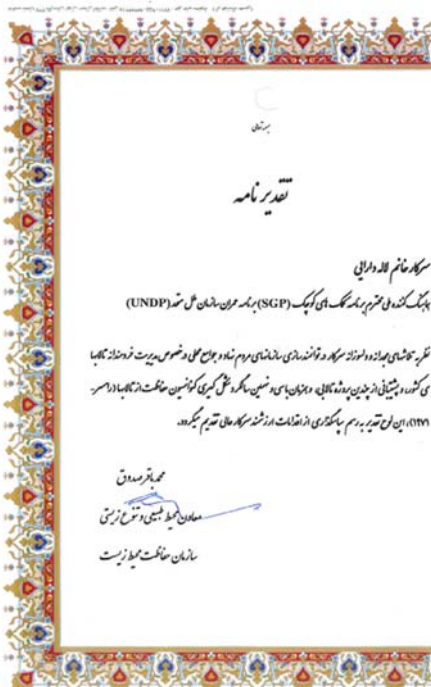 بسمه تعالی
تقدیر نامه
سرکار خانم لاله دارایی
هماهنگ کننده ملی محترم برنامه کمک های کوچک (SGP) برنامه عمران سازمان ملل متحد (UNDP)
نظر به تلاشهای مجدانه و دلسوزانه سرکار در توانمندسازی سازمانهای مردم نهاد و جوامع محلی در خصوص مدیریت خردمندانه تالابها
ی کشور، و پشتیبانی از چندین پروژه تالابی، و همزمان با سی و نهمین سالگرد شکل گیری کنوانسیون حفاظت از تالابها (رامسر-
۱۹۷۱)، این لوح تقدیر به رسم سپاسگذاری از اقدامات ارزشمند سرکار عالی تقدیم میگردد.
محمدباقر صدوق
معاون محیط طبیعی و تنوع زیستی
سازمان حفاظت محیط زیست